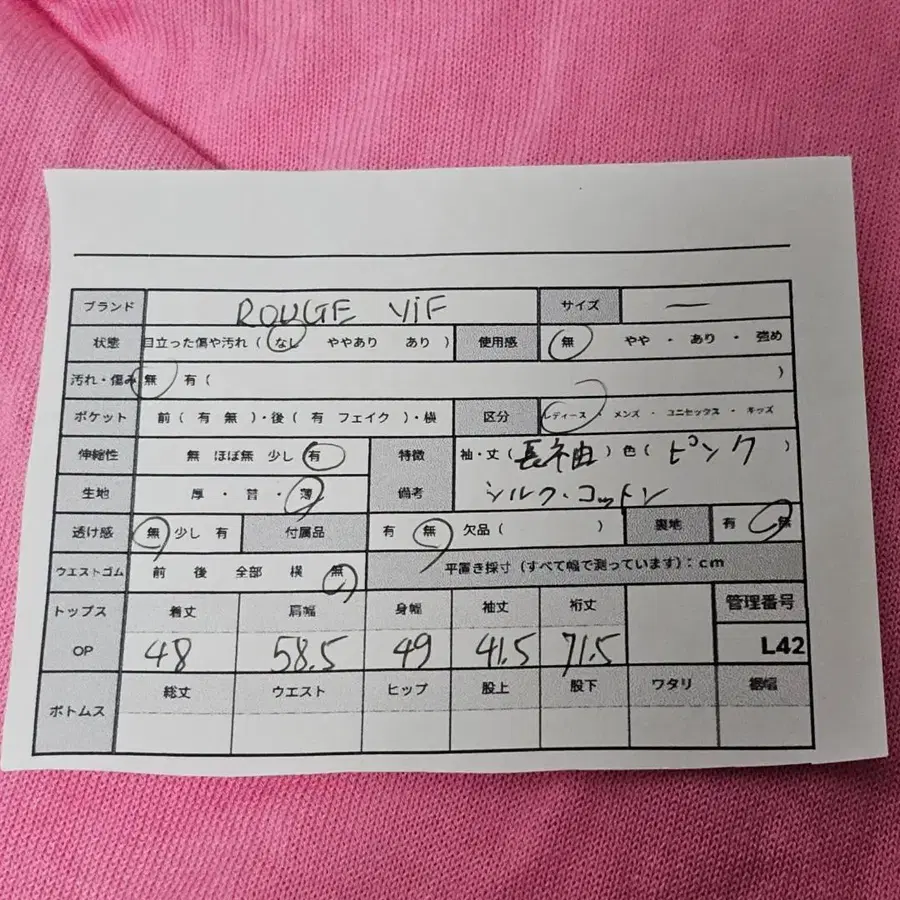 ブランド ROUGE VIF サイズ ー
状態 目立った傷や汚れ ( なし ややあり あり ) 使用感 無 やや ・ あり ・ 強め
汚れ・傷み 無 有 ( )
ポケット 前 ( 有 無 )・後 ( 有 フェイク )・横 区分 レディース ・ メンズ ・ ユニセックス ・ キッズ
伸縮性 無 ほぼ無 少し 有 特徴 袖・丈 ( 長袖 ) 色 ( ピンク )
生地 厚 ・ 普 ・ 薄 備考 シルク・コットン
透け感 無 少し 有 付属品 有 無 欠品 ( ) 裏地 有 無
ウエストゴム 前 後 全部 横 無 平置き採寸 (すべて幅で測っています) : cm
トップス 着丈 肩幅 身幅 袖丈 裄丈 管理番号
OP 48 58.5 49 41.5 71.5 L42
ボトムス 総丈 ウエスト ヒップ 股上 股下 ワタリ 裾幅